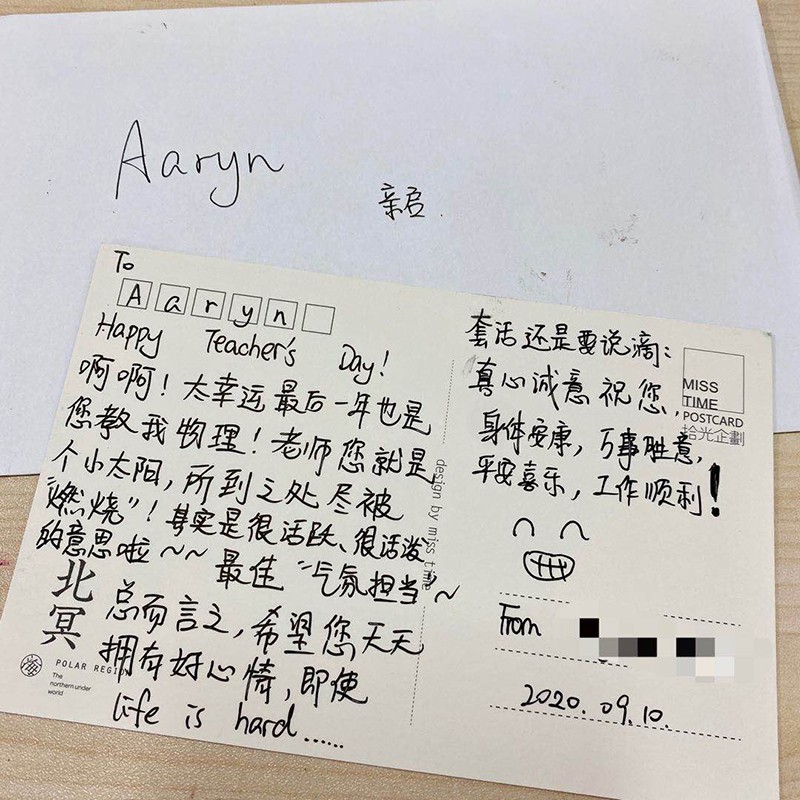 Aaryn
亲启.
To
Aaryn
Happy Teacher's Day!
啊啊！太幸运最后一年也是
您教我物理！老师您就是
个小太阳，所到之处尽被
“燃烧”！其实是很活跃、很活泼
的意思啦~~ 最佳“气氛担当”~
总而言之，希望您天天
拥有好心情，即使
life is hard......
北冥
POLAR REGION
The
northern under
world
design by miss time
套话还是要说滴：
真心诚意祝您，
身体安康，万事胜意，
平安喜乐，工作顺利！
MISS
TIME
POSTCARD
拾光企劃
From
2020.09.10.